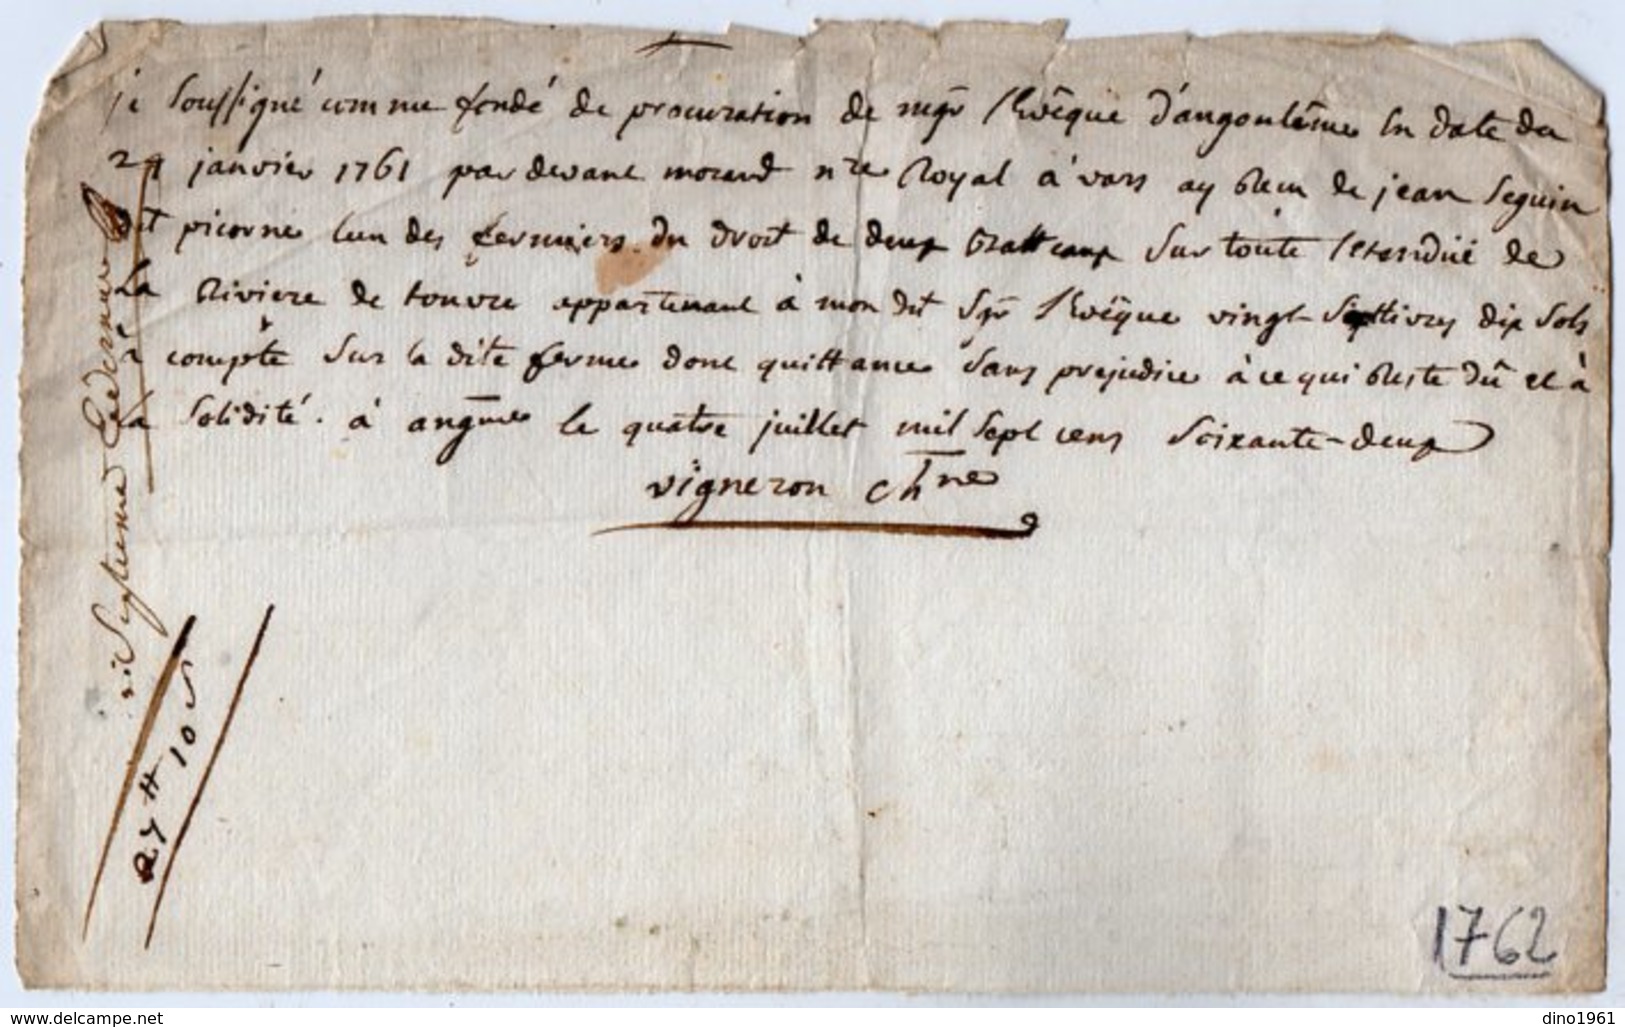 je soussigné comme fondé de procuration de mgr l'evêque d'angoulême en date du
janvier 1761 par devant morand nre Royal à vars ay Recu de jean Seguin
dit picorne lun des fermiers du droit de deux sur toute l'etenduë de
La Riviere de touvre appartenant à mon dit Sgr l'evêque vingt Sept livres dix Sols
à compte sur la dite ferme dont quittance Sans prejudice à ce qui Reste dû et à
La Solidité. à angme le quatre juillet mil Sept cens Soixante-deux
vigneron chne
Septieme
27 ₶ 10 s
1762
www.delcampe.net
dino1961